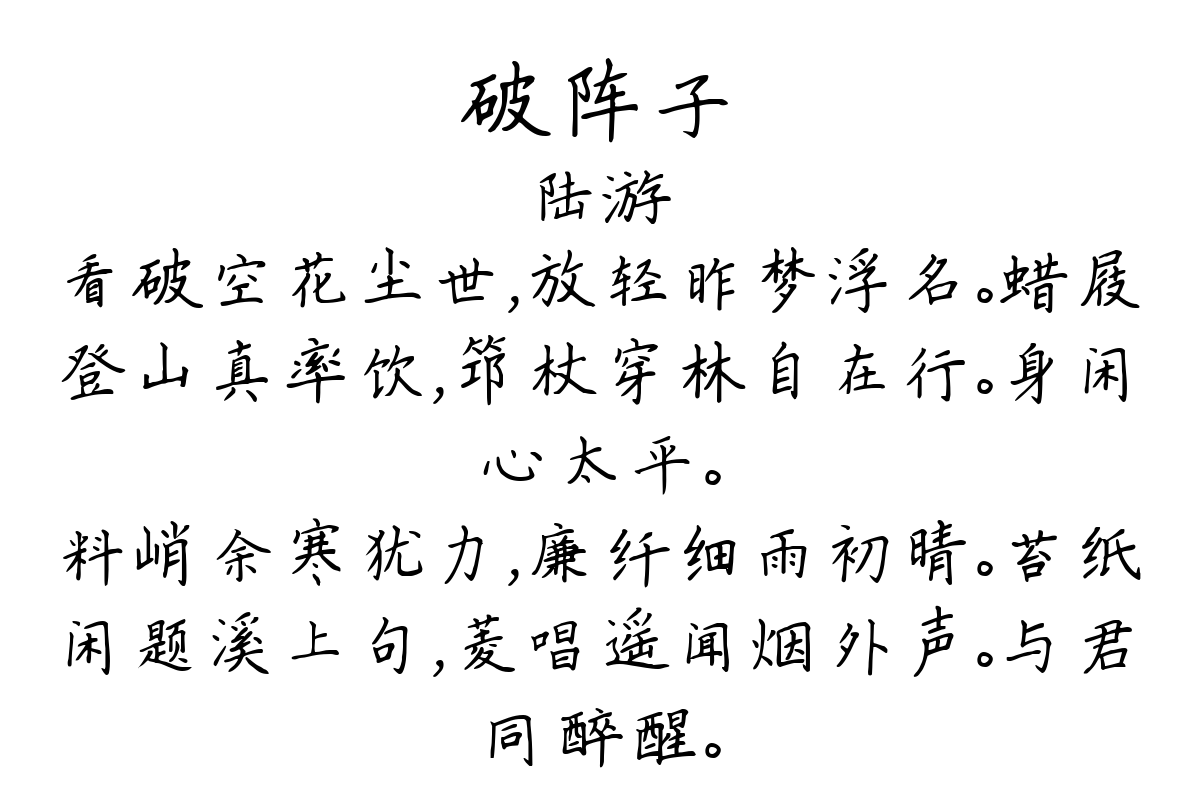 破阵子
陆游
看破空花尘世,放轻昨梦浮名。蜡屐
登山真率饮,筇杖穿林自在行。身闲
心太平。
料峭余寒犹力,廉纤细雨初晴。苔纸
闲题溪上句,菱唱遥闻烟外声。与君
同醉醒。